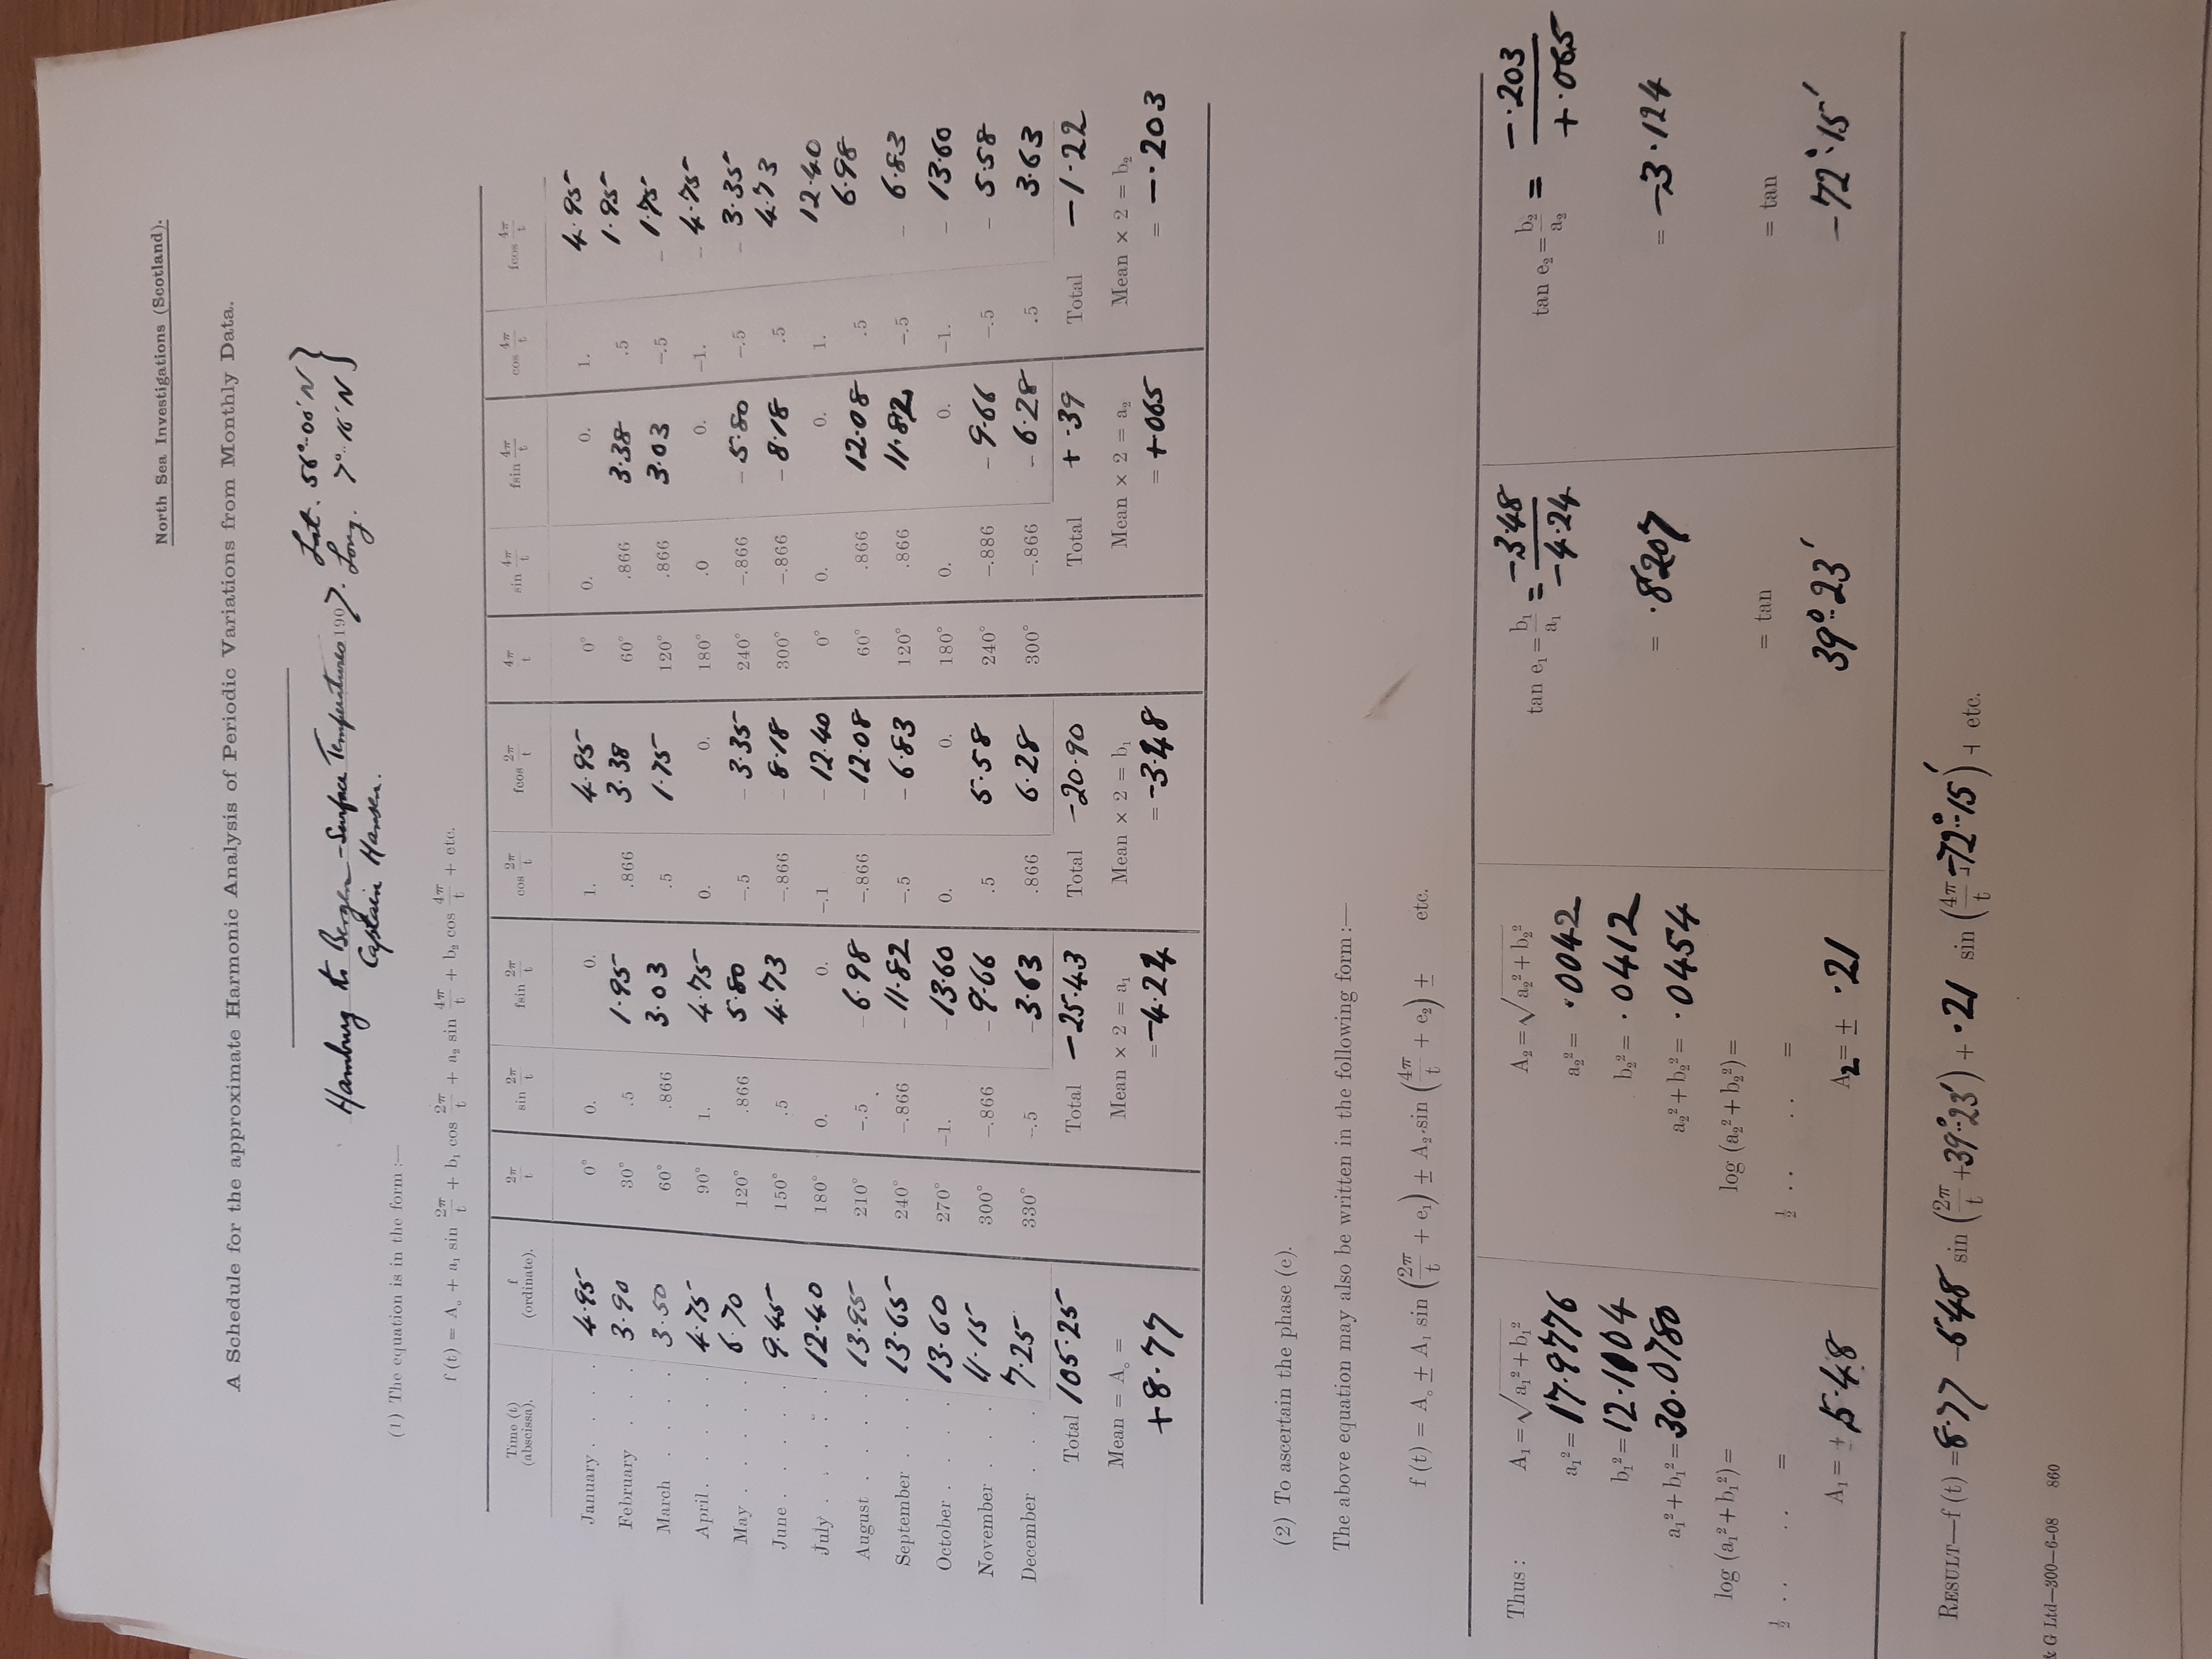 North Sea Investigations (Scotland).
A Schedule for the approximate Harmonic Analysis of Periodic Variations from Monthly Data.
Hamburg to Bergen - Surface Temperatures 1907. Lat. 56°-00' N }
Captain Hansen. Long. 7°-16' N }
(1) The equation is in the form :—
f (t) = A₀ + a₁ sin 2π/t + b₁ cos 2π/t + a₂ sin 4π/t + b₂ cos 4π/t + etc.
Time (t) (abscissa). f (ordinate). 2π/t sin 2π/t fsin 2π/t cos 2π/t fcos 2π/t 4π/t sin 4π/t fsin 4π/t cos 4π/t fcos 4π/t
January . . . . 4.95 0° 0. 0. 1. 4.95 0° 0. 0. 1. 4.95
February . . . 3.90 30° .5 1.95 .866 3.38 60° .866 3.38 .5 1.95
March . . . . 3.50 60° .866 3.03 .5 1.75 120° .866 3.03 –.5 – 1.75
April . . . . . 4.75 90° 1. 4.75 0. 0. 180° .0 0. –1. – 4.75
May . . . . . 6.70 120° .866 5.80 –.5 – 3.35 240° –.866 – 5.80 –.5 – 3.35
June . . . . . 9.45 150° .5 4.73 –.866 – 8.18 300° –.866 – 8.18 .5 4.73
July . . . . . 12.40 180° 0. 0. –.1 – 12.40 0° 0. 0. 1. 12.40
August . . . . 13.95 210° –.5 – 6.98 –.866 – 12.08 60° .866 12.08 .5 6.98
September . . . 13.65 240° –.866 – 11.82 –.5 – 6.83 120° .866 11.82 –.5 – 6.83
October . . . . 13.60 270° –1. – 13.60 0. 0. 180° 0. 0. –1. – 13.60
November . . . 11.15 300° –.866 – 9.66 .5 5.58 240° –.886 – 9.66 –.5 – 5.58
December . . . 7.25 330° –.5 – 3.63 .866 6.28 300° –.866 – 6.28 .5 3.63
Total 105.25 Total – 25.43 Total – 20.90 Total + .39 Total – 1.22
Mean = A₀ = Mean × 2 = a₁ Mean × 2 = b₁ Mean × 2 = a₂ Mean × 2 = b₂
+8.77 = –4.24 = –3.48 = +065 = –.203
(2) To ascertain the phase (e).
The above equation may also be written in the following form :—
f (t) = A₀ ± A₁ sin (2π/t + e₁) ± A₂ sin (4π/t + e₂) ± etc.
Thus : A₁ = √a₁² + b₁² A₂ = √a₂² + b₂² tan e₁ = b₁/a₁ = –3.48/–4.24 tan e₂ = b₂/a₂ = –.203/+.065
a₁² = 17.9776 a₂² = .0042
b₁² = 12.1104 b₂² = .0412
a₁² + b₁² = 30.0780 a₂² + b₂² = .0454 = .8207 = –3.124
log (a₁² + b₁²) = log (a₂² + b₂²) =
½ . . . . = ½ . . . . = = tan = tan
A₁ = ± 5.48 A₂ = ± .21 39°.23' –72°.15'
RESULT—f (t) = 8.77 –5.48 sin (2π/t + 39°.23') + .21 sin (4π/t –72°.15') + etc.
& G Ltd—300—6-08 860